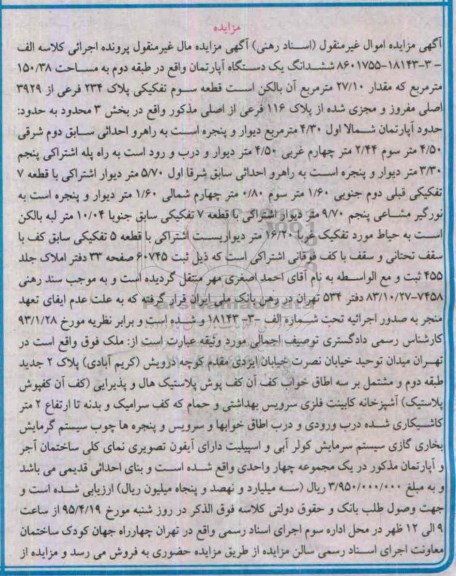 مزایده
آگهی مزایده اموال غیرمنقول (اسناد رهنی) آگهی مزایده مال غیرمنقول پرونده اجرائی کلاسه الف
- ۳-۱۸۱۴۳-۸۶۰۱۷۵۵ ششدانگ یک دستگاه آپارتمان واقع در طبقه دوم به مساحت ۱۵۰/۳۸
مترمربع که مقدار ۲۷/۱۰ مترمربع آن بالکن است قطعه سوم تفکیکی پلاک ۲۳۴ فرعی از ۳۹۲۹
اصلی مفروز و مجزی شده از پلاک ۱۱۶ فرعی از اصلی مذکور واقع در بخش ۳ محدود به حدود:
حدود آپارتمان شمالا اول ۴/۳۰ مترمربع دیوار و پنجره است به راهرو احداثی سابق دوم شرقی
۴/۵۰ متر سوم ۲/۴۴ متر چهارم غربی ۴/۵۰ متر دیوار و درب و رود است به راه پله اشتراکی پنجم
۳/۳۰ متر دیوار و پنجره است به راهرو احداثی سابق شرقا اول ۵/۷۰ متر دیوار اشتراکی با قطعه ۷
تفکیکی قبلی دوم جنوبی ۱/۶۰ متر سوم ۰/۸۰ متر چهارم شمالی ۱/۶۰ متر دیوار و پنجره است به
نورگیر مشاعی پنجم ۹/۷۰ متر دیوار اشتراکی با قطعه ۷ تفکیکی سابق جنوبا ۱۰/۰۴ متر لبه بالکن
است به حیاط مورد تفکیک غربا ۱۶/۲۰ متر دیواریست اشتراکی با قطعه ۵ تفکیکی سابق کف با
سقف تحتانی و سقف با کف فوقانی اشتراکی است که ذیل ثبت ۶۰۷۴۵ صفحه ۳۳ دفتر املاک جلد
۴۵۵ ثبت و مع الواسطه به نام آقای احمد اصغری مهر منتقل گردیده است و به موجب سند رهنی
۷۴۵۸-۸۳/۱۰/۲۷ دفتر ۵۳۴ تهران در رهن بانک ملی ایران قرار گرفته که به علت عدم ایفای تعهد
منجر به صدور اجرائیه تحت شماره الف -۳- ۱۸۱۴۳ و شده است و برابر نظریه مورخ ۹۳/۱/۲۸
کارشناس رسمی دادگستری توصیف اجمالی مورد وثیقه عبارت است از: ملک فوق واقع است در
تهران میدان توحید خیابان نصرت خیابان ایزدی مقدم کوچه درویش (کریم آبادی) پلاک ۲ جدید
طبقه دوم و مشتمل بر سه اطاق خواب کف آن کف پوش پلاستیک هال و پذیرایی (کف آن کفپوش
پلاستیک) آشپزخانه کابینت فلزی سرویس بهداشتی و حمام که کف سرامیک و بدنه تا ارتفاع ۲ متر
کاشیکاری شده درب ورودی و درب اطاق خوابها و سرویس و پنجره ها چوب سیستم گرمایش
بخاری گازی سیستم سرمایش کولر آبی و اسپیلیت دارای آیفون تصویری نمای کلی ساختمان آجر
و آپارتمان مذکور در یک مجموعه چهار واحدی واقع شده است و بنای احداثی قدیمی می باشد
و به مبلغ ۳/۹۵۰/۰۰۰/۰۰۰ ریال (سه میلیارد و نهصد و پنجاه میلیون ریال) ارزیابی شده است و
جهت وصول طلب بانک و حقوق دولتی کلاسه فوق الذکر در روز شنبه مورخ ۹۵/۴/۱۹ از ساعت
۹ الی ۱۲ ظهر در محل اداره سوم اجرای اسناد رسمی واقع در تهران چهارراه جهان کودک ساختمان
معاونت اجرای اسناد رسمی سالن مزایده از طریق مزایده حضوری به فروش می رسد و مزایده از